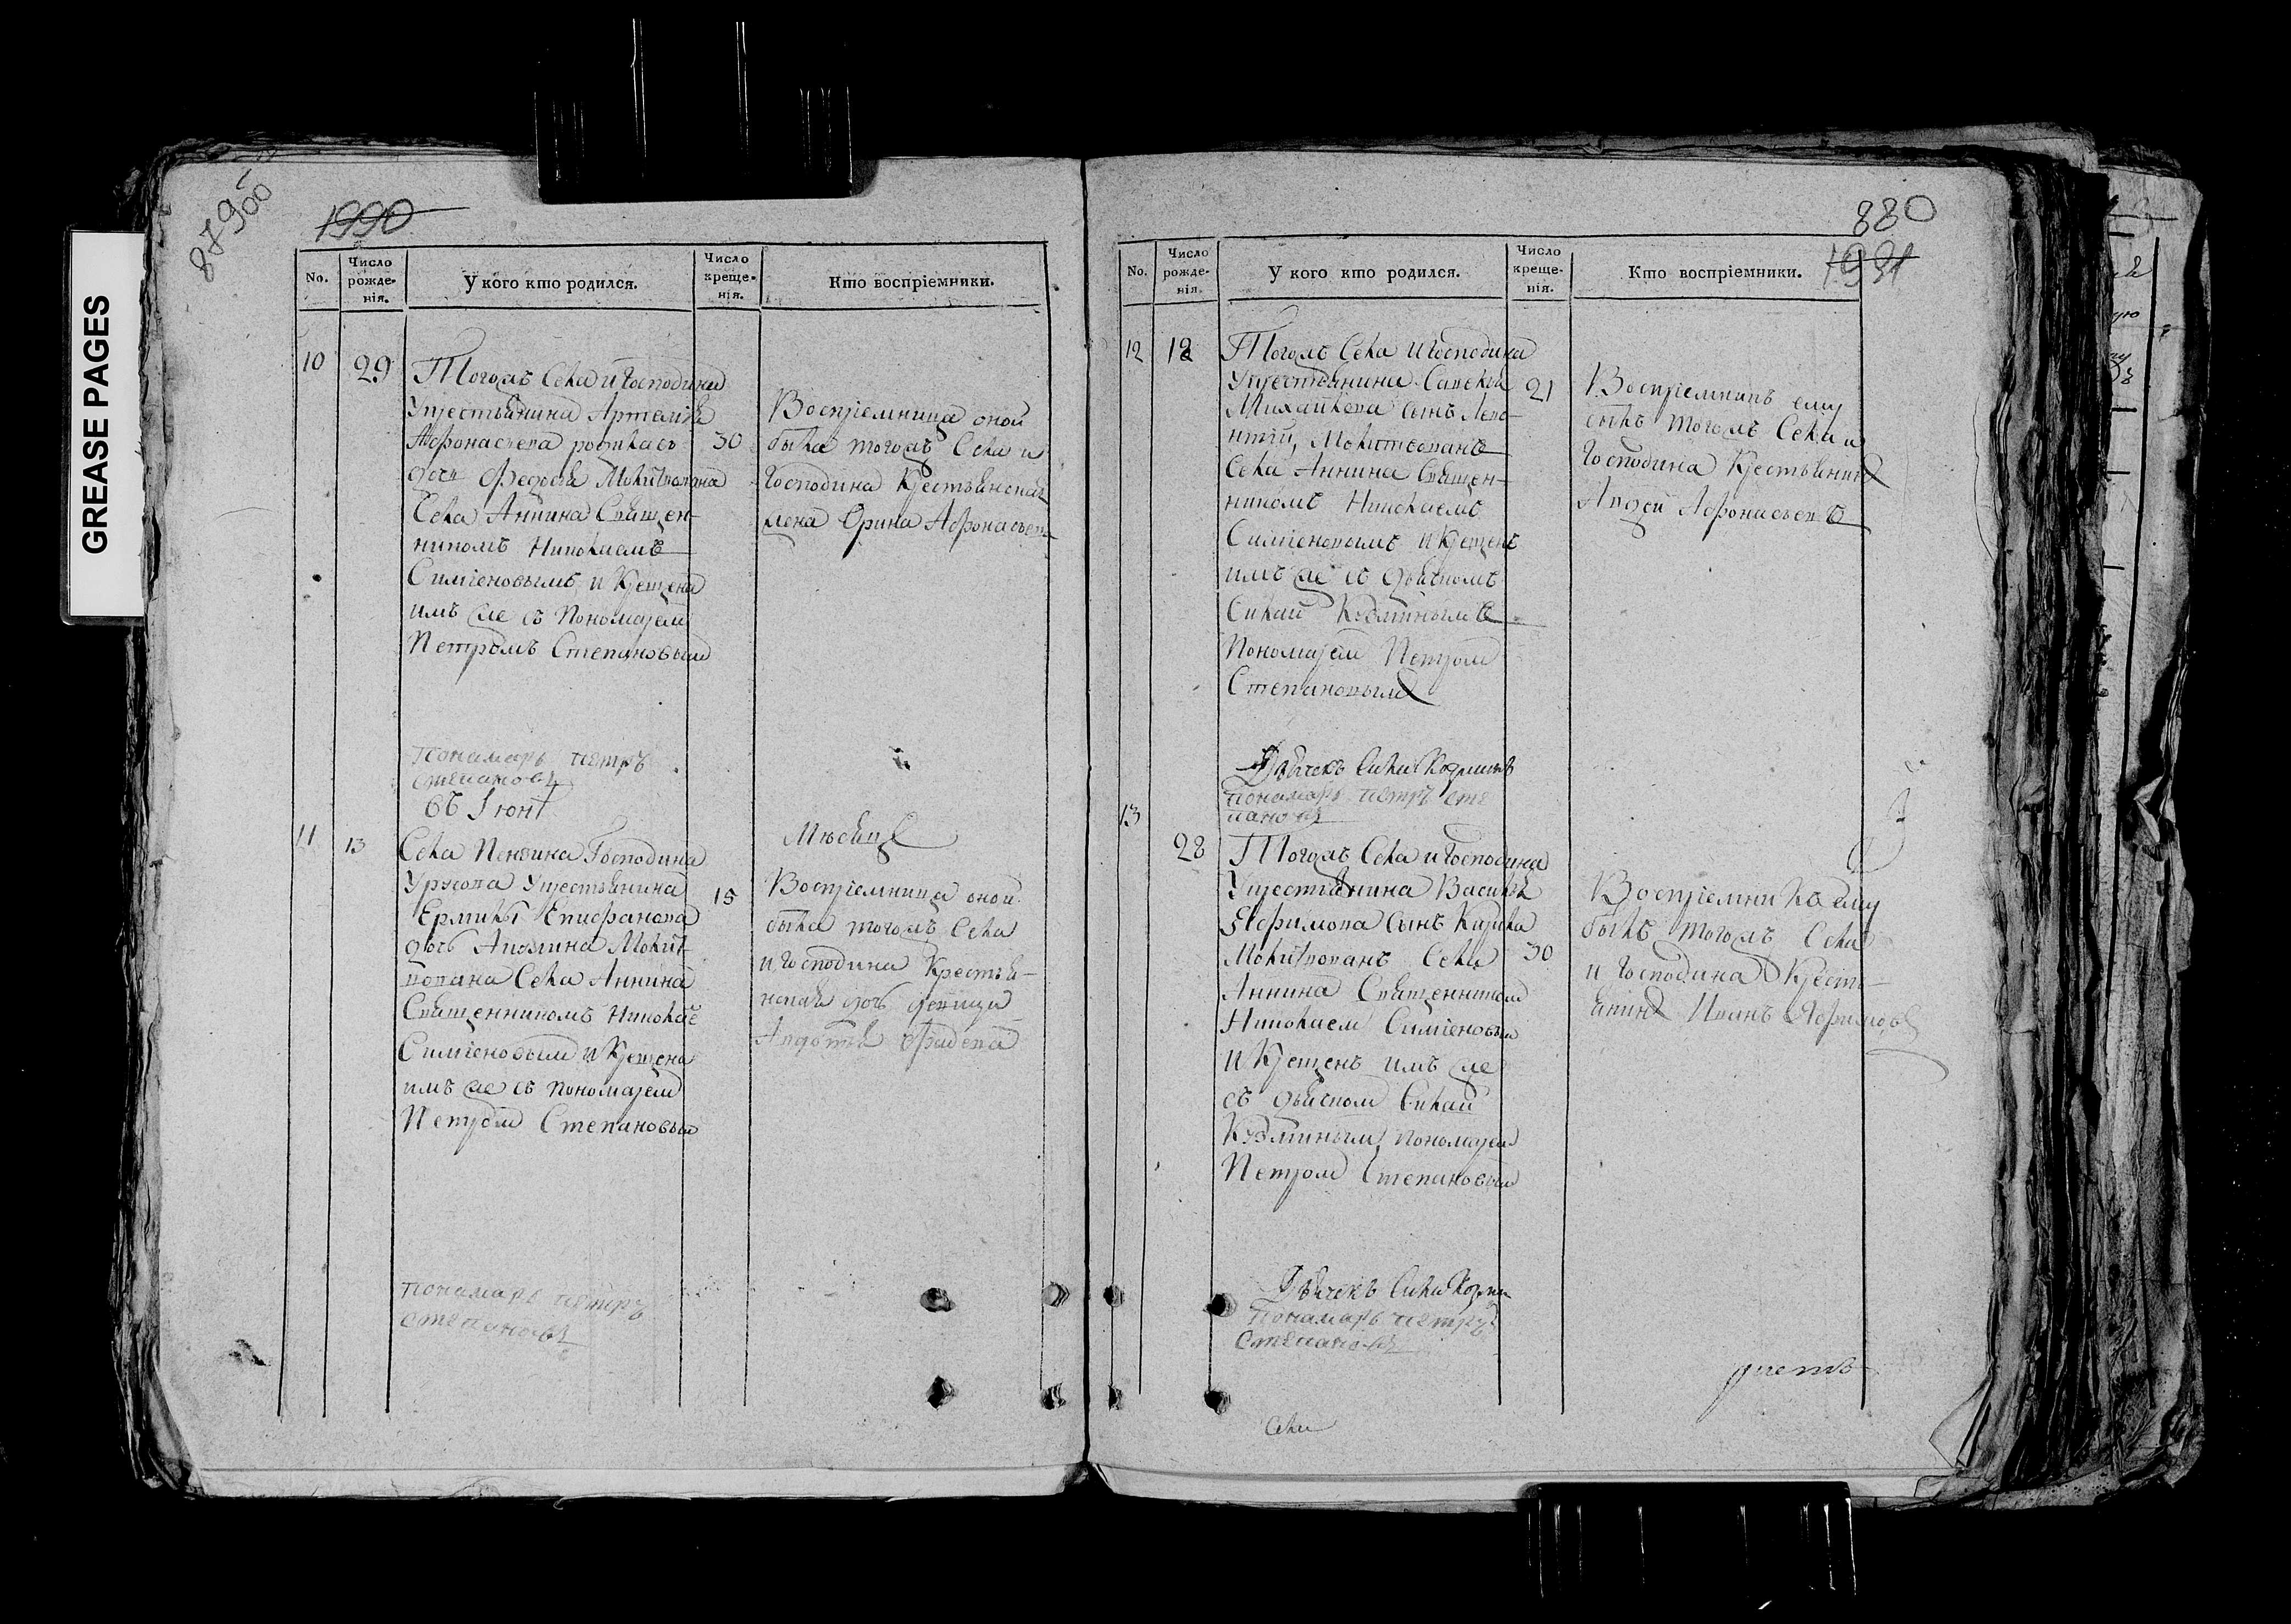 GREASE PAGES
1990
No.
Число рожде-нія.
У кого кто родился.
Число креще-нія.
Кто воспріемники.
10
29
Тогожъ Села и Господина
Укрестьянина Артемія
Афонасьева родилась
30
дочь Федосья Молитвована
Села Аннина Священ-
никомъ Николаемъ
Симіоновымъ и Крещена
имъ же съ Пономарем
Петромъ Степановым
Воспріемница оной
была тогожъ Села и
Господина Крестьянская
жена Орина Афонасьев
понамарь петръ
степановъ
въ Іюнѣ
Мѣсяцѣ
11
13
Села Пензина Господина
Урусова Укрестьянина
Ермилы Епифанова
15
дочь Акулина Молит-
вована Села Аннина
Священникомъ Николае
Симіоновым и Крещена
имъ же съ пономарем
Петром Степановым
Воспріемница оной
была тогожъ Села
и Господина Крестья-
нская дочь девица
Авдотья
понамарь петръ
степановъ
880
1991
No.
Число рожде-нія.
У кого кто родился.
Число креще-нія.
Кто воспріемники.
12
18
Тогожъ Села и Господина
Укрестьянина Савелья
21
Михайлова сынъ Лево-
нтій, Молитвованъ
Села Аннина Священ-
никомъ Николаемъ
Симіоновымъ и Крещенъ
имъ же съ дьячкомъ
Силой Кузминымъ
Пономарем Петром
Степановым
Воспріемникъ ему
былъ тогожъ Села и
Господина Крестьянин
Андрей Афонасьевъ
Дьячекъ Сила Козминъ
понамарь петръ сте
пановъ
13
28
Тогожъ Села и Господина
Укрестьянина Василья
Ефимова сынъ Кирила
Молитвованъ Села
30
Аннина Священником
Николаем Симіоновым
и Крещенъ имъ же
съ дьячком Силой
Кузминым, пономарем
Петром Степановым
Воспріемникъ ему
былъ тогожъ Села
и Господина Кресть-
янин Иванъ Ефимовъ
Дьячекъ Сила Козми
понамарь петръ
степановъ
Села